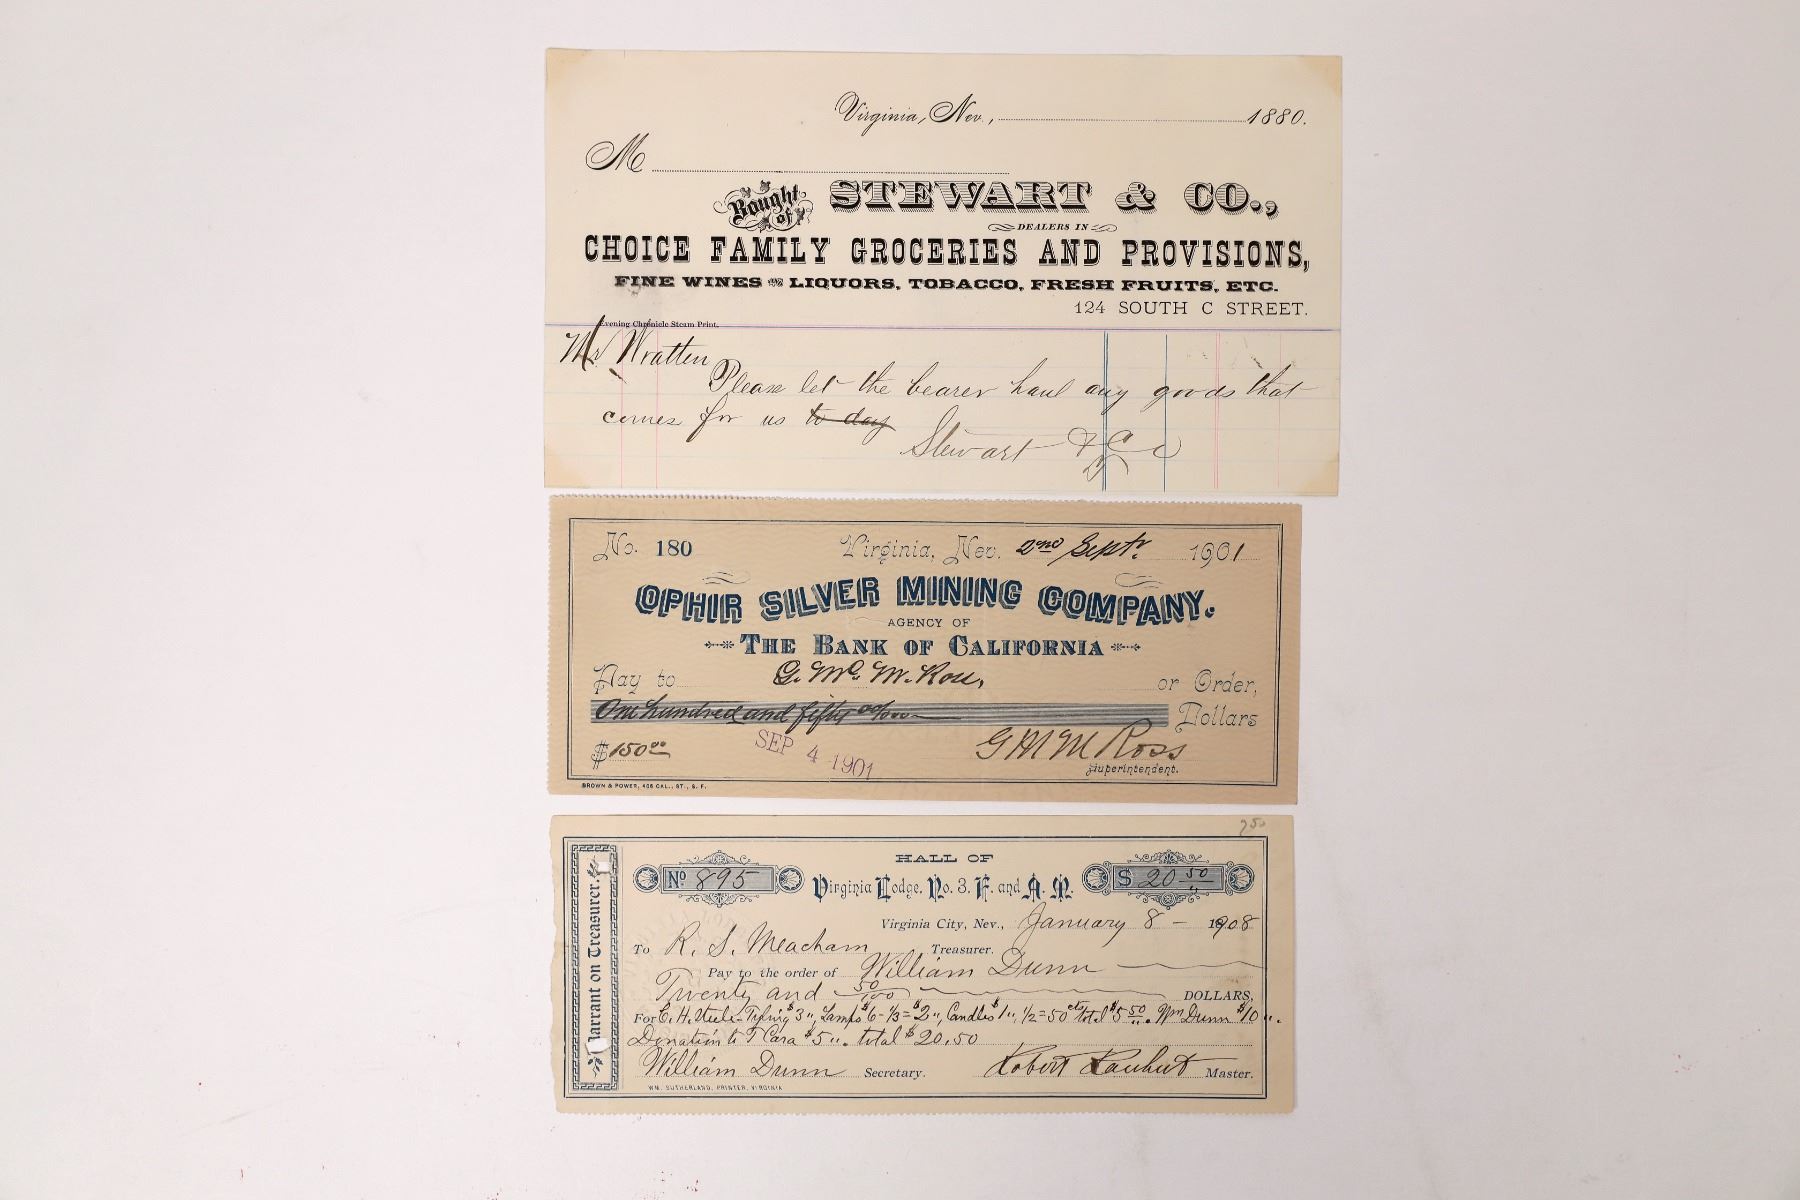 Virginia, Nev., 1880.
M
Bought of STEWART & CO.,
DEALERS IN
CHOICE FAMILY GROCERIES AND PROVISIONS,
FINE WINES AND LIQUORS, TOBACCO, FRESH FRUITS, ETC.
124 SOUTH C STREET.
Evening Chronicle Steam Print.
Mr Wratten
Please let the bearer haul any goods that
comes for us to day
Stewart & Co
No. 180 Virginia, Nev. 2nd Septr. 1901
OPHIR SILVER MINING COMPANY.
AGENCY OF
THE BANK OF CALIFORNIA
Pay to G. Mc. M. Ross, or Order,
One hundred and fifty 00/100 Dollars
$150.00
SEP 4 1901
G M M Ross
Superintendent.
BROWN & POWER, 406 CAL., ST., S. F.
750
HALL OF
No 895 Virginia Lodge, No. 3, F. and A. M. $ 20 50
Virginia City, Nev., January 8 - 1908
To R. S. Meacham Treasurer.
Pay to the order of William Dunn
Twenty and 50/100 DOLLARS,
For C. H. Typing $3", Lamps $6 - 1/3 = $2", Candles $1", 1/2 = 50 cts total $5 50. Wm Dunn $10".
Donation to Cara $5". total $20.50
William Dunn Secretary. Robert Master.
WM. SUTHERLAND, PRINTER, VIRGINIA
Warrant on Treasurer.